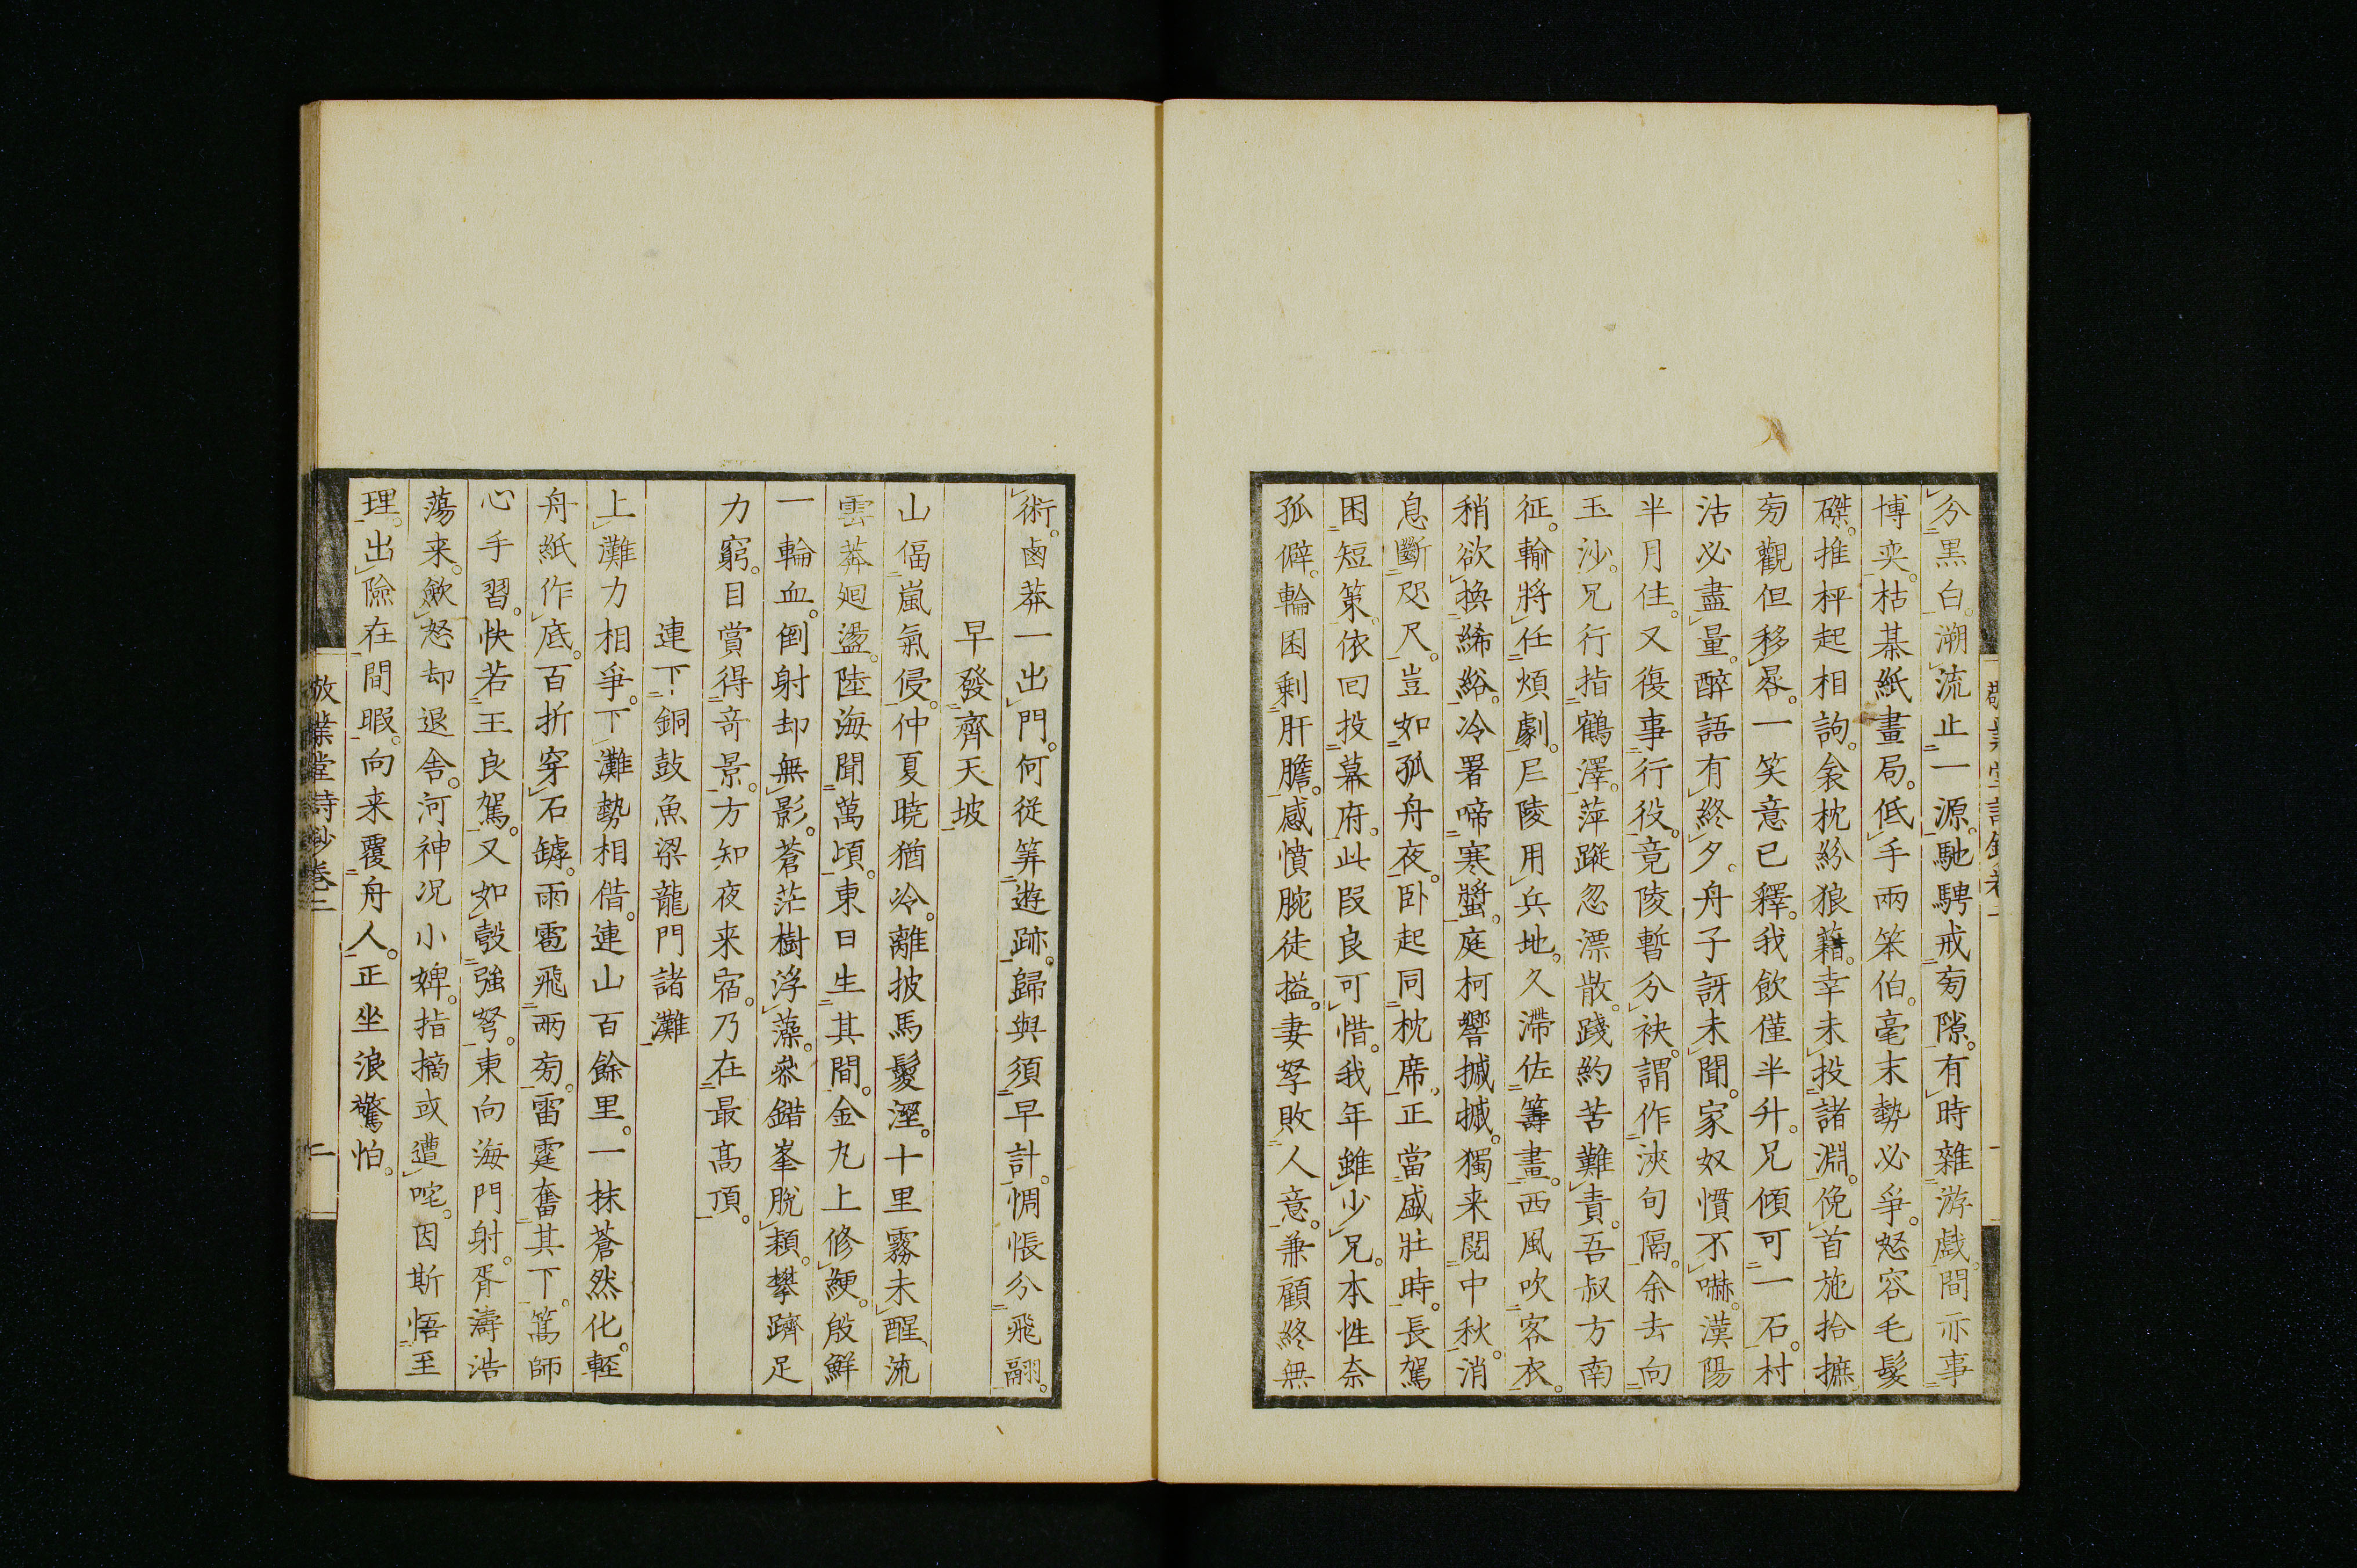 分黒白。溯流止一源。馳騁戒旁隙。有時雜游戲。間亦事
博奕。枯棊紙畫局。低手兩笨伯。毫末勢必爭。怒容毛髮
磔。推枰起相詢。衾枕紛狼藉。幸未投諸淵。俛首施拾摭
旁觀但移晷。一笑意已釋。我飲僅半升。兄傾可一石。村
沽必盡量。醉語有終夕。舟子訝未聞。家奴慣不嚇。漢陽
半月住。又復事行役。竟陵暫分袂。謂作浹旬隔。余去向
玉沙。兄行指鶴澤。萍蹤忽漂散。踐約苦難責。吾叔方南
征。輸將任煩劇。巵陵用兵地。久滯佐籌畫。西風吹客衣。
稍欲換絺綌。冷署啼寒螿。庭柯響摵摵。獨来閲中秋。消
息斷咫尺。豈如孤舟夜。卧起同枕席。正當盛壯時。長駕
困短策。依回投幕府。此叚良可惜。我年雖少兄。本性奈
孤僻。輪囷剩肝膽。感憤腕徒搤。妻孥敗人意。兼顧終無
術。鹵莽一出門。何從筭遊跡。歸與須早計。惆悵分飛翮。
早發齊天坡
山偪嵐氣侵。仲夏曉猶冷。離披馬鬉溼。十里霧未醒。流
雲莽廻盪。陸海聞萬頃。東日生其間。金丸上修綆。殷鮮
一輪血。倒射却無影。蒼茫樹浮藻。叅錯峯脫穎。攀躋足
力窮。目賞得竒景。方知夜来宿。乃在最髙頂。
連下銅鼓魚梁龍門諸灘
上灘力相爭。下灘勢相借。連山百餘里。一抹蒼然化。輕
舟紙作底。百折穿石罅。雨雹飛兩旁。雷霆奮其下。篙師
心手習。快若王良駕。又如彀強弩。東向海門射。胥濤浩
蕩来。歘怒却退舍。河神况小婢。指摘或遭咤。因斯悟至
理。出險在間暇。向来覆舟人。正坐浪驚怕。
敬業堂詩鈔卷二
二